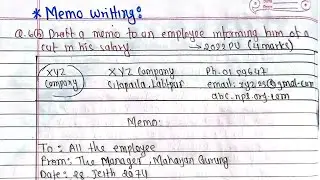 * Memo writing:
Q.6(b) Draft a memo to an employee informing him of a
cut in his salary. → 2022 PU (4 marks)
XYZ Company XYZ Company Ph: 01 09647
Sitapaila, Lalitpur email: xyz25@gmail.com
abc.npl.org.com
Memo:
To: All the employee
From: The Manager, Mahayan Gurung
Date: 28 Jeith 2074